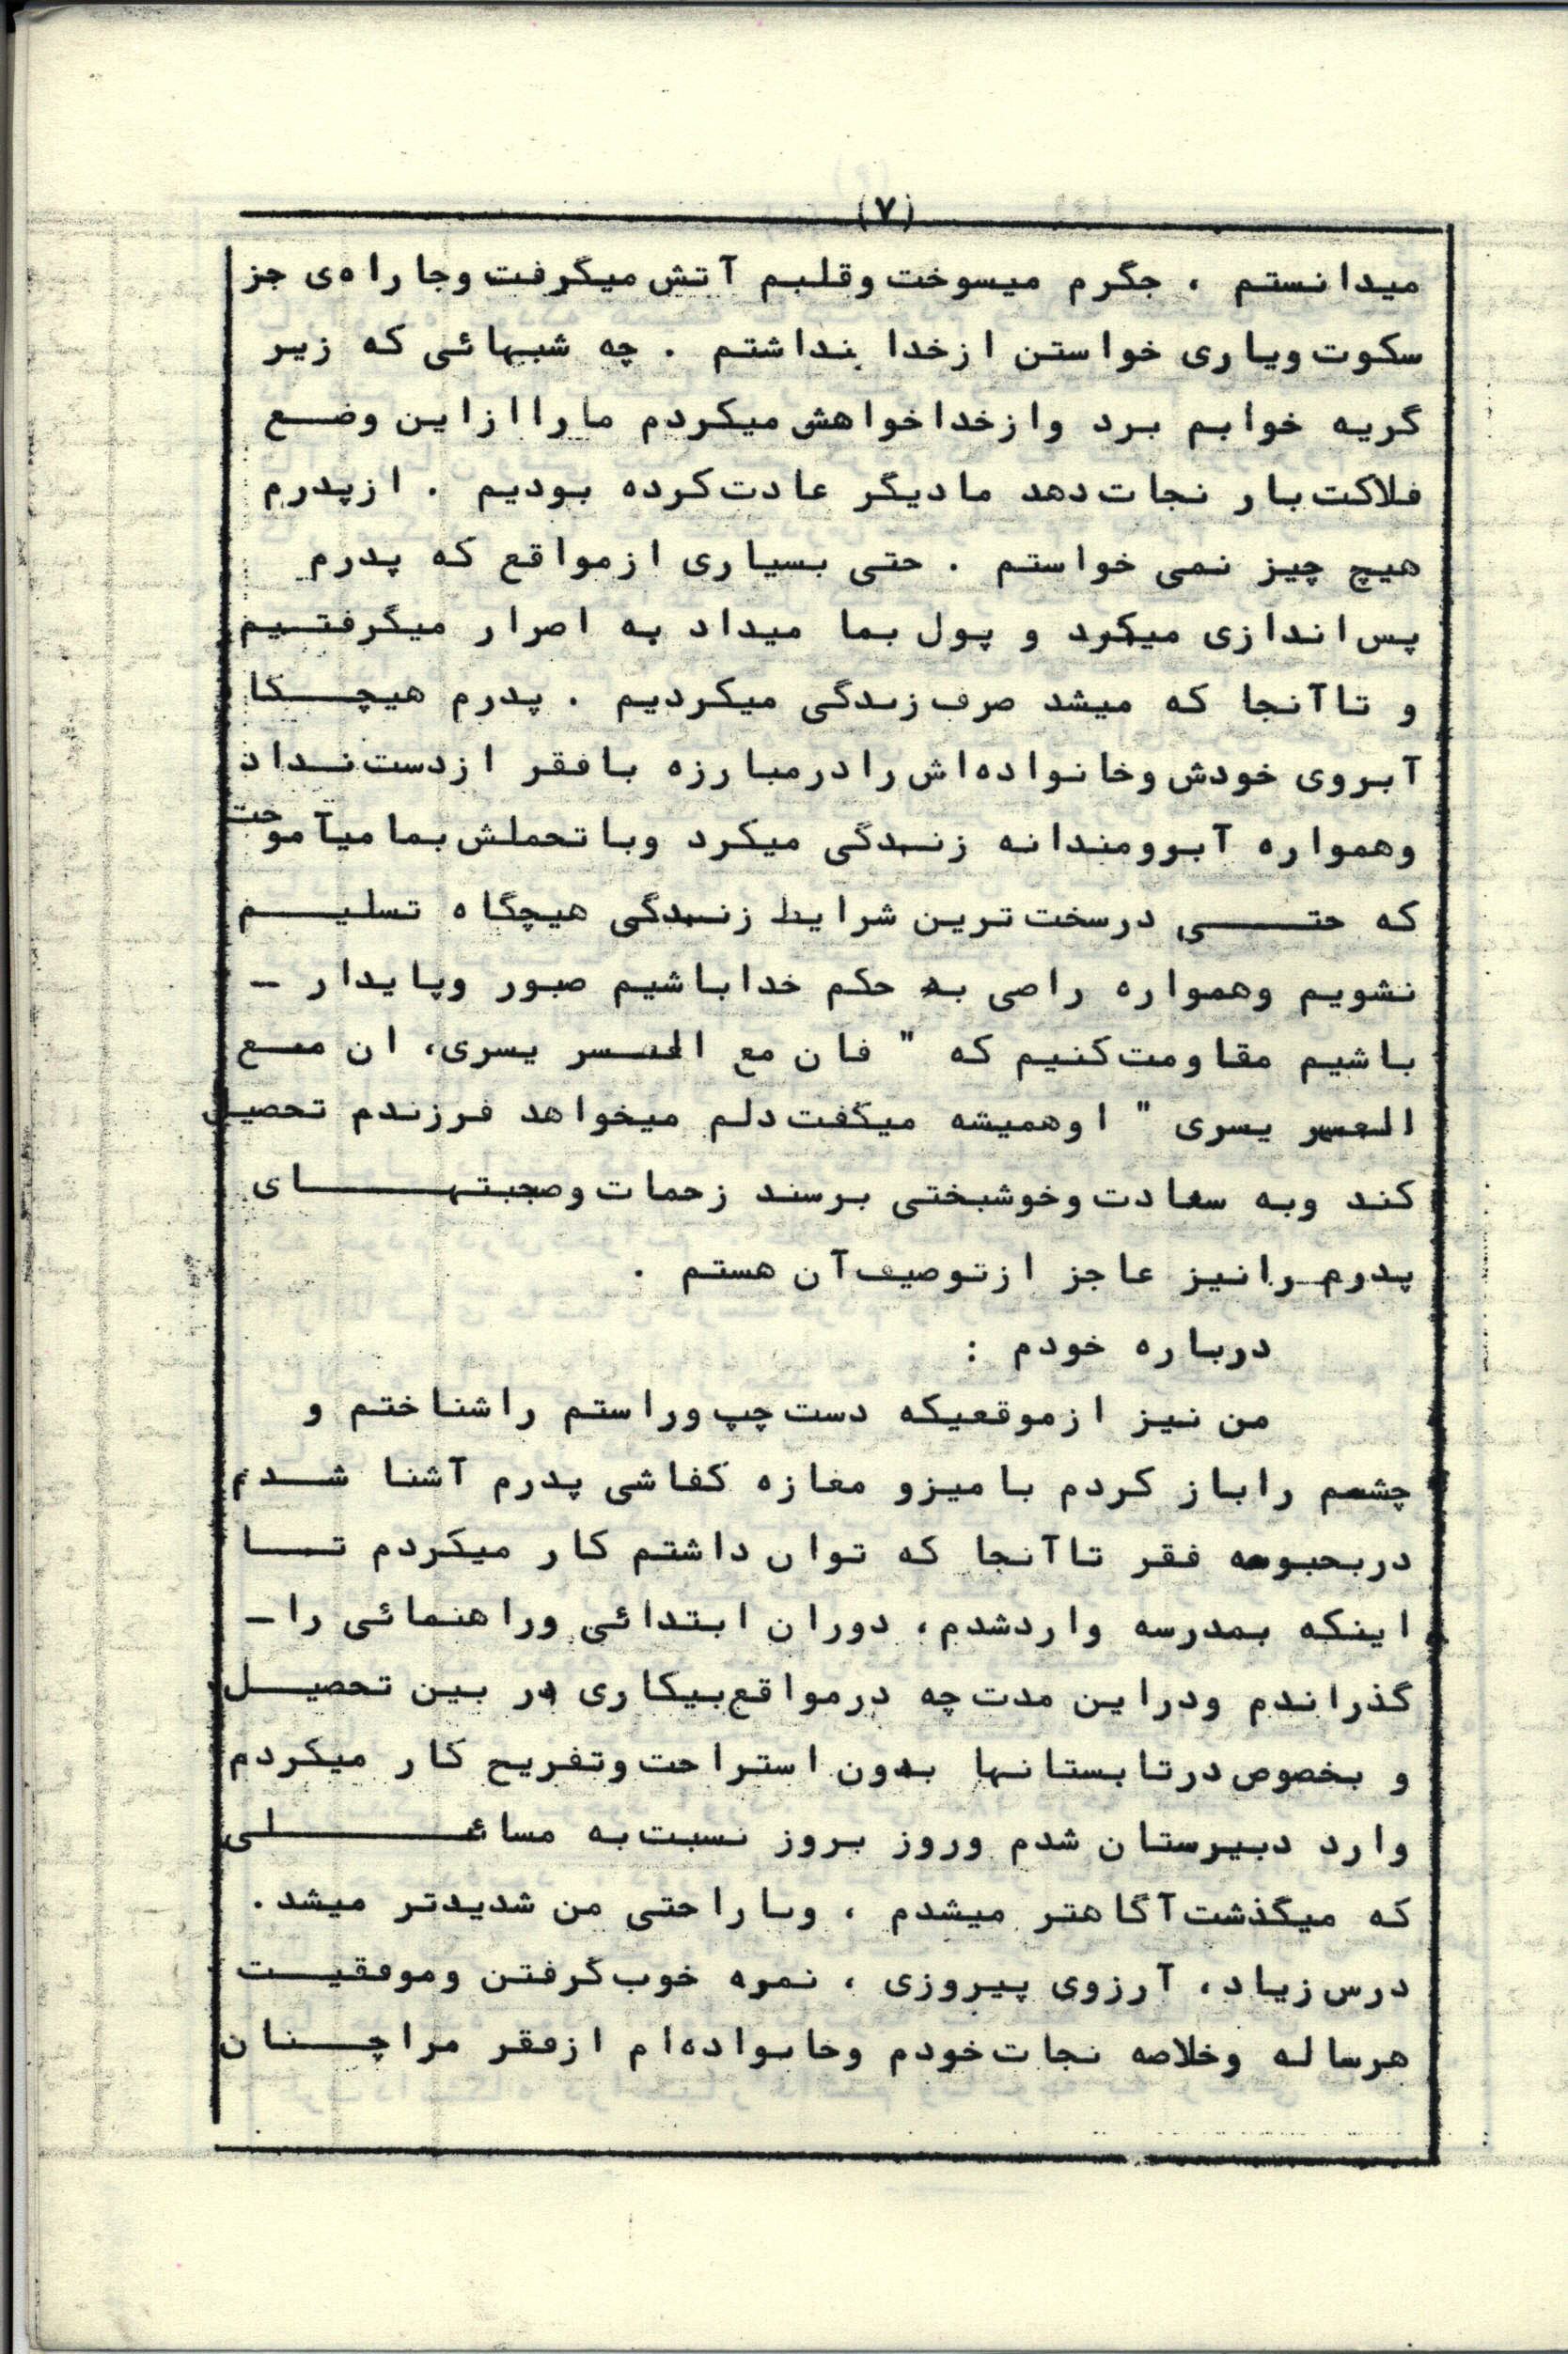 (۷)
میدانستم ، جگرم میسوخت وقلبم آتش میگرفت وجا راه‌ی جز
سکوت ویاری خواستن ازخدا نداشتم . چه شبهائی که زیر
گریه خوابم برد وازخداخواهش میکردم ماراازاین وضع
فلاکت‌بار نجات‌دهد مادیگر عادت‌کرده بودیم . ازپدرم
هیچ چیز نمی خواستم . حتی بسیاری ازمواقع که پدرم
پس‌اندازی میکرد و پول بما میداد به اصرار میگرفتیم
و تاآنجا که میشد صرف زندگی میکردیم . پدرم هیچگا
آبروی خودش وخانواده‌اش رادرمبارزه بافقر ازدست‌نداد
وهمواره آبرومندانه زندگی میکرد وباتحملش بما میآموخت
که حتی درسخت‌ترین شرایط زندگی هیچگاه تسلیم
نشویم وهمواره راضی به حکم خداباشیم صبور وپایدار -
باشیم مقاومت‌کنیم که " فان مع العسر یسری، ان مع
العسر یسری " اوهمیشه میگفت دلم میخواهد فرزندم تحصیل
کند وبه سعادت وخوشبختی برسند زحمات وصحبتهای
پدرم رانیز عاجز ازتوصیف آن هستم .
درباره خودم :
من نیز ازموقعیکه دست چپ وراستم راشناختم و
چشمم راباز کردم بامیزو مغازه کفاشی پدرم آشنا شدم
دربحبوحه فقر تاآنجا که توان داشتم کار میکردم تا
اینکه بمدرسه واردشدم، دوران ابتدائی وراهنمائی را -
گذراندم ودراین مدت چه درمواقع بیکاری در بین تحصیل
و بخصوص درتابستانها بدون استراحت وتفریح کار میکردم
وارد دبیرستان شدم وروز بروز نسبت به مسائلی
که میگذشت آگاهتر میشدم ، وناراحتی من شدیدتر میشد.
درس زیاد، آرزوی پیروزی ، نمره خوب گرفتن وموفقیت
هرساله وخلاصه نجات خودم وخانواده‌ام ازفقر مراچنان